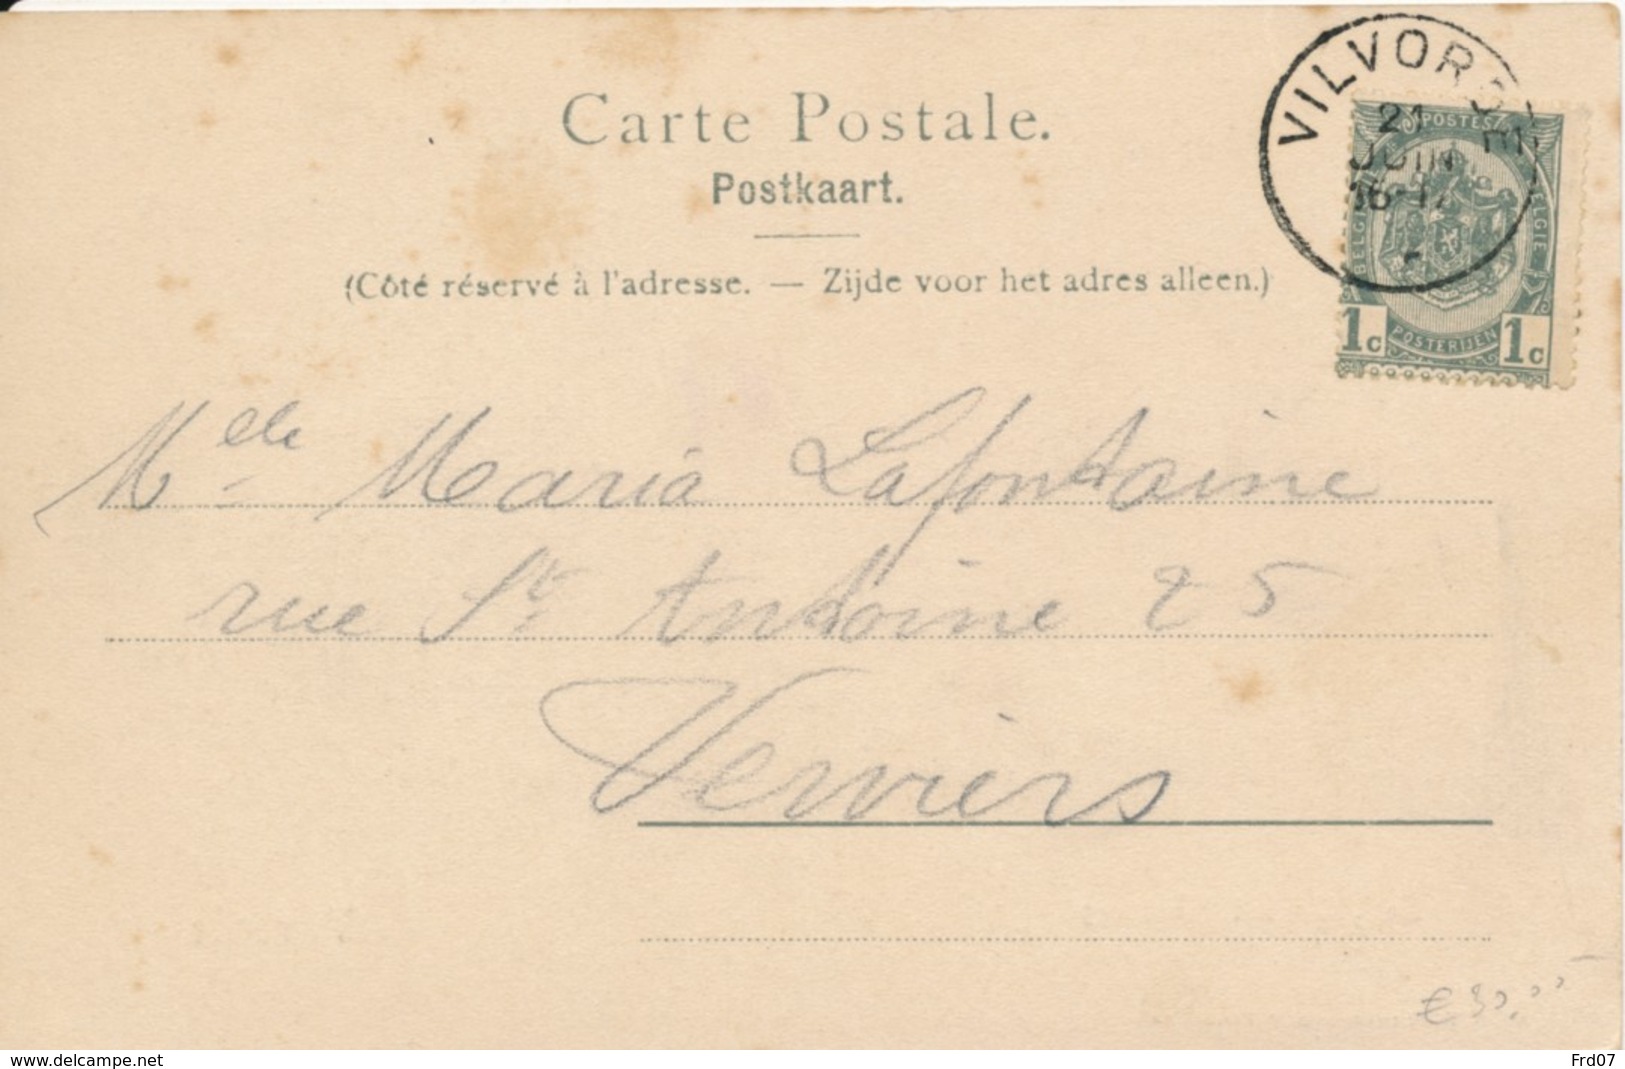 Carte Postale.
Postkaart.
(Côté réservé à l'adresse. — Zijde voor het adres alleen.)
VILVORDE
21
JUIN
16-17
POSTES
BELGIQUE
BELGIE
1c POSTERIJEN 1c
Melle Maria Lafontaine
rue St Antoine 25
Verviers
€30.00
www.delcampe.net
Frd07